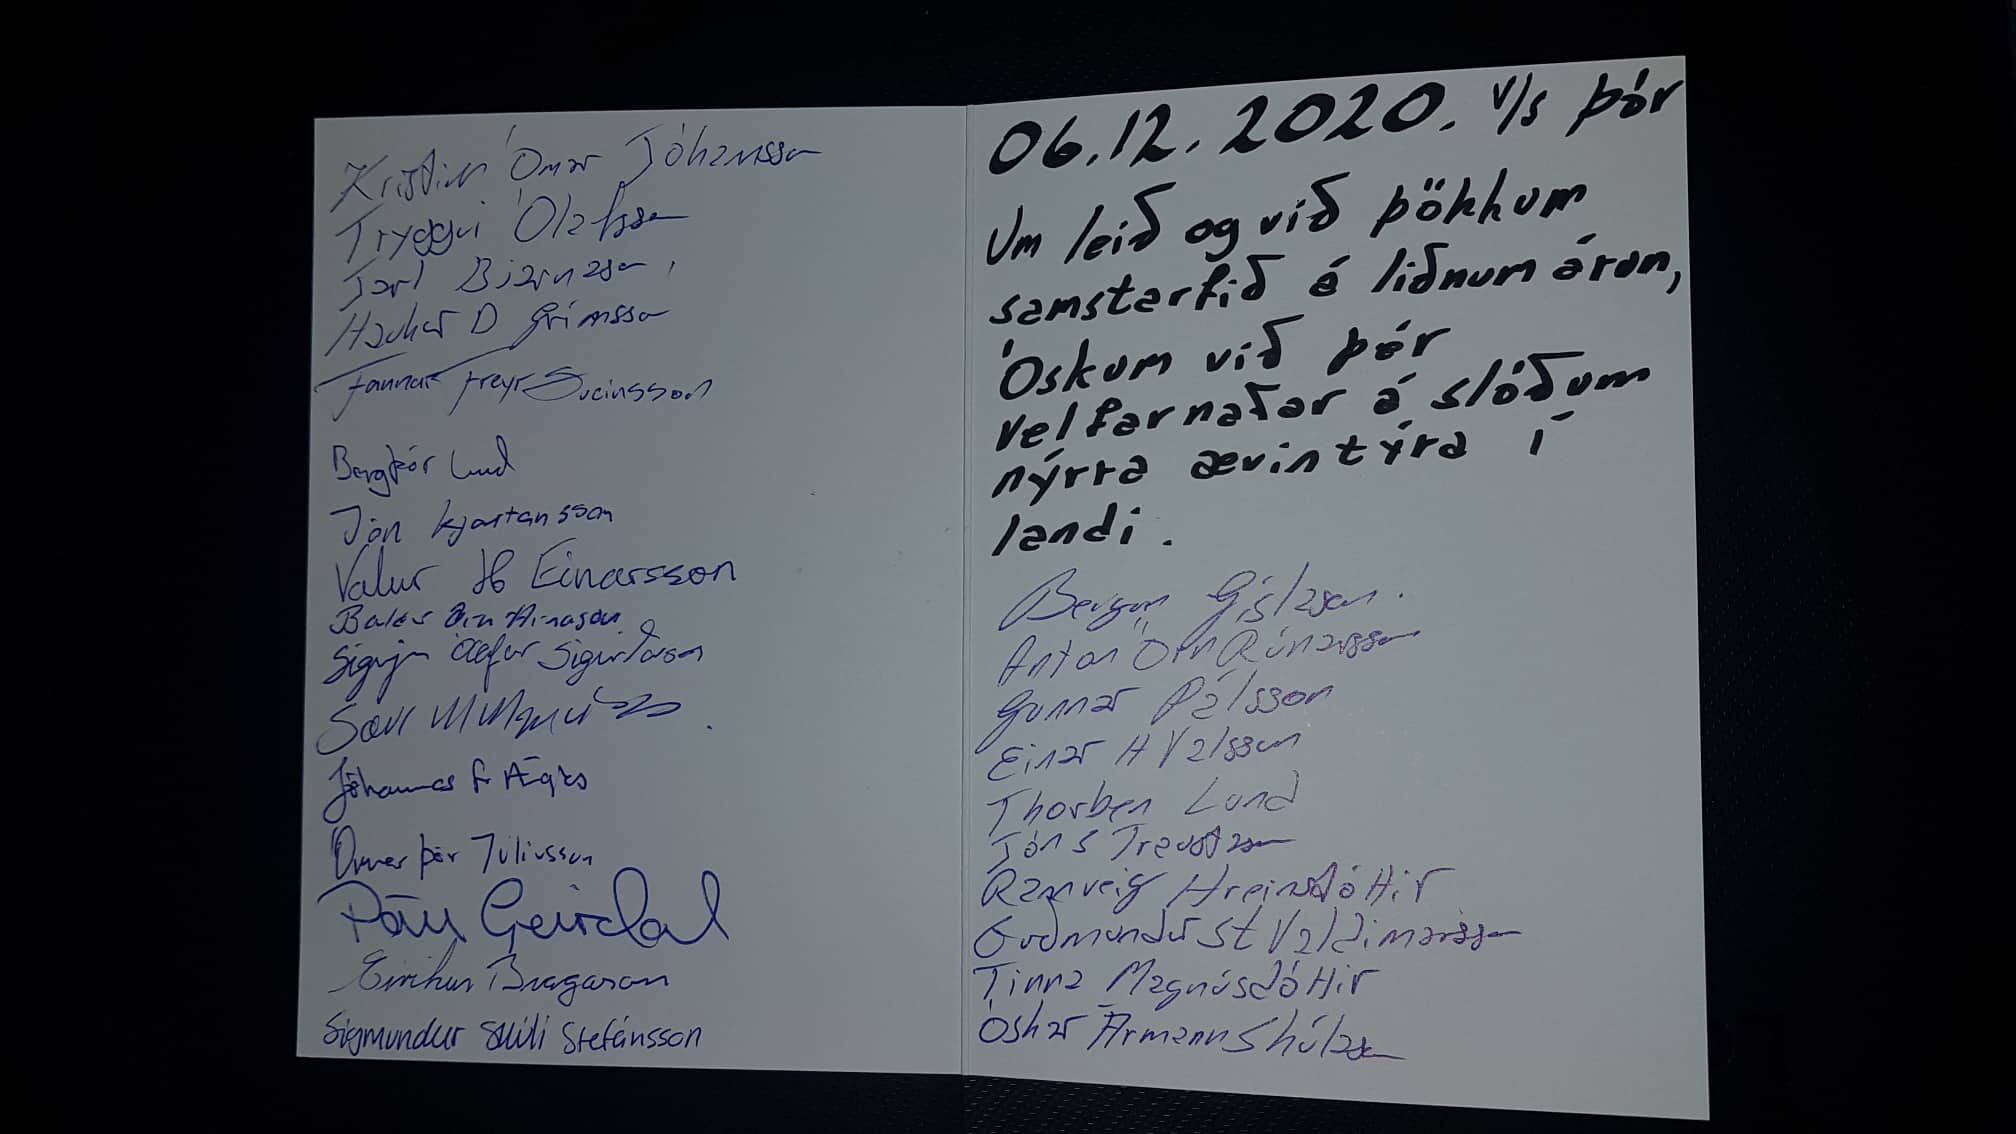 Kristinn Ómar Jóhannsson
Tryggvi Ólafsson
Jarl Bjarnason
Haukur D Grímsson
Fannar Freyr Sveinsson
Bergþór Lund
Jón Kjartansson
Valur Einarsson
Árnason
Sigurðsson
Sævar
Jóhannes
Þór Júlíusson
Páll Geirdal
Eiríkur Bragason
Sigmundur Skúli Stefánsson
06.12.2020. v/s þór
Um leið og við þökkum
samstarfið á liðnum árum,
Óskum við þér
velfarnaðar á slóðum
nýrra ævintýra í
landi.
Gíslason.
Anton Örn Rúnarsson
Gunnar Pálsson
Einar H Valsson
Thorben Lund
Jón S Traustason
Rannveig Hreinsdóttir
Guðmundur St Valdimarsson
Tinna Magnúsdóttir
Óskar Ármann Skúlason